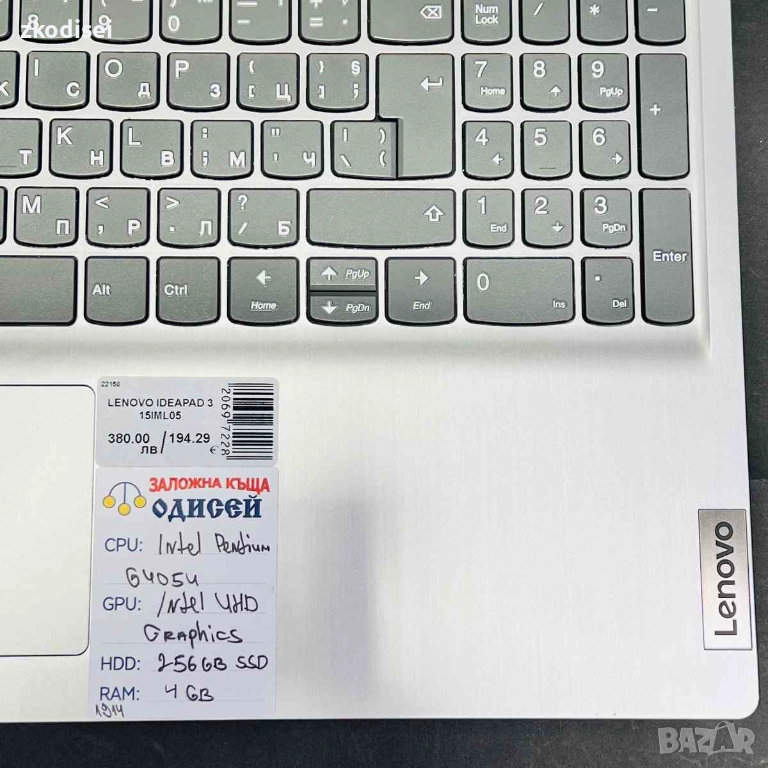 zkodisei
Num Lock
/ * -
К І С О Д Р З [ { Ц } ] § ;
7 Home 8 9 PgUp
+
Т К Н L В : ; М " ' Ч | \ ( )
4 5 6
М П < , Р > . Л ? / Б
1 End 2 3 PgDn
Enter
Alt Ctrl Home PgUp PgDn End
0 Ins . Del
22150
LENOVO IDEAPAD 3
15IML05
380.00 ЛВ / 194.29 €
20697228
ЗАЛОЖНА КЪЩА
ОДИСЕЙ
CPU: Intel Pentium
6405U
GPU: Intel UHD
Graphics
HDD: 256GB SSD
RAM: 4 GB
1914
Lenovo
BAZAR